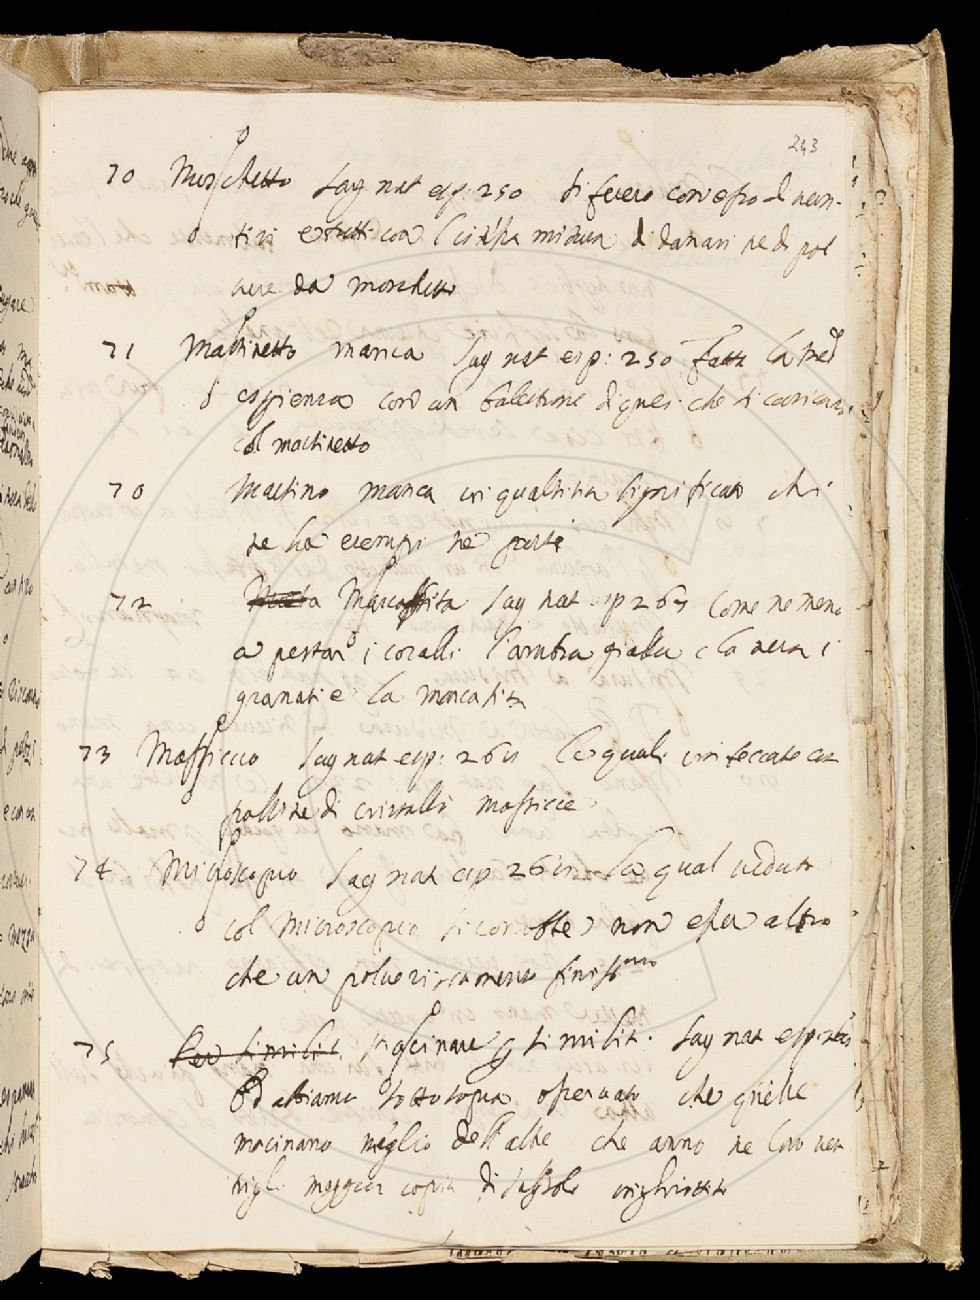 243
70 Moschetto Sag nat esp: 250 si fecero con esso d neun-
tiri e tutti con l' misura di danari ne di pol
vere da moschetto
71 Mastietto manca Sag nat esp: 250 fatta la med
esperienza con un falcettone di quei che si caricano
col mastietto
70 Mastino manca in qualsisia significato chi
ne ha esempi ne porti
72 Marcassita Sag nat esp 267 come ne meno
a pestar i coralli l'ambra gialla e la nera i
granati e la marcasita
73 Massiccio Sag nat esp: 26 le quali in seccate con
palline di cristallo massicce
74 Microscopio Sag nat esp 26 la qual veduta
col microscopio si conobbe non esser altro
che un polverizzamento finiss.mo
75 Per similit. Macinare p similit. Sag nat esp
Ed abbiamo sotto sopra osservato che quelle
macinano meglio dell'altre che anno ne loro ven
trigli maggior copia di sassolini inghiottiti